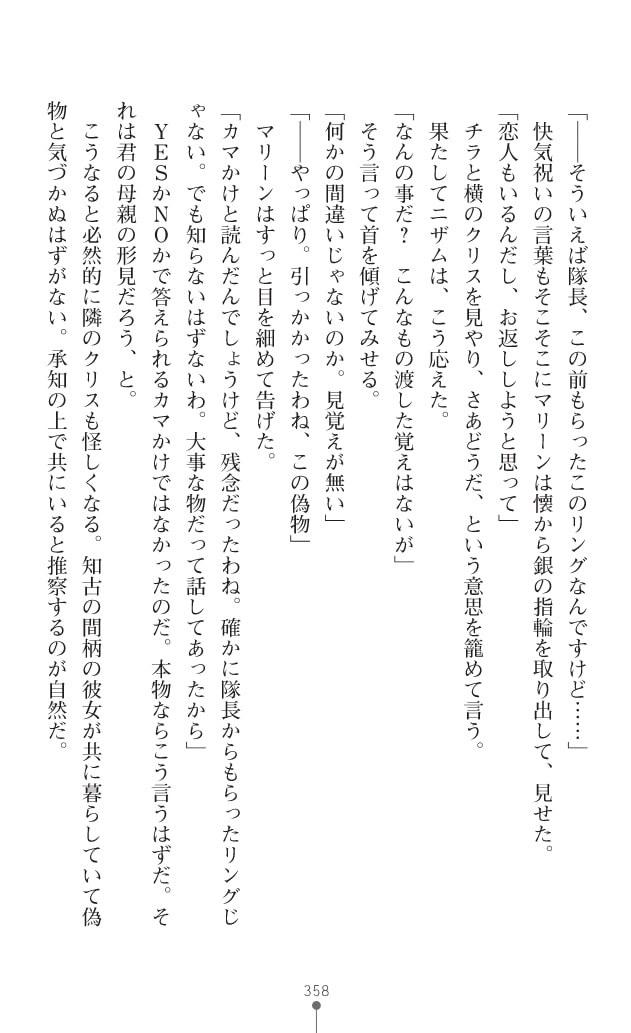 「――そういえば隊長、この前もらったこのリングなんですけど……」
　快気祝いの言葉もそこそこにマリーンは懐から銀の指輪を取り出して、見せた。
「恋人もいるんだし、お返ししようと思って」
　チラと横のクリスを見やり、さあどうだ、という意思を籠めて言う。
　果たしてニザムは、こう応えた。
「なんの事だ？　こんなもの渡した覚えはないが」
　そう言って首を傾げてみせる。
「何かの間違いじゃないのか。見覚えが無い」
「――やっぱり。引っかかったわね、この偽物」
　マリーンはすっと目を細めて告げた。
「カマかけと読んだんでしょうけど、残念だったわね。確かに隊長からもらったリングじ
ゃない。でも知らないはずないわ。大事な物だって話してあったから」
　ＹＥＳかＮＯかで答えられるカマかけではなかったのだ。本物ならこう言うはずだ。そ
れは君の母親の形見だろう、と。
　こうなると必然的に隣のクリスも怪しくなる。知古の間柄の彼女が共に暮らしていて偽
物と気づかぬはずがない。承知の上で共にいると推察するのが自然だ。
358